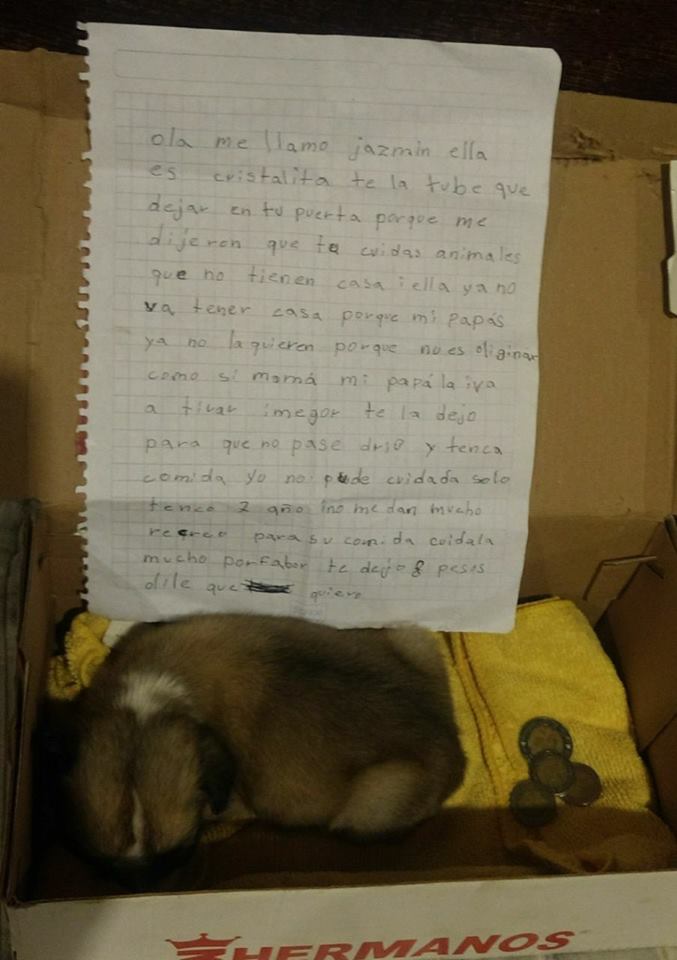 ola me llamo jazmin ella
es cristalita te la tube que
dejar en tu puerta porque me
dijeron que tu cuidas animales
que no tienen casa i ella ya no
va tener casa porque mi papás
ya no la quieren porque no es oliginar
como si mamá mi papá la iva
a tirar imegor te la dejo
para que no pase drio y tenca
comida yo no pude cuidada solo
tenco 7 año ino me dan mucho
recreo para su comida cuidala
mucho porfabor te dejo 8 pesos
dile que quiero
3HERMANOS